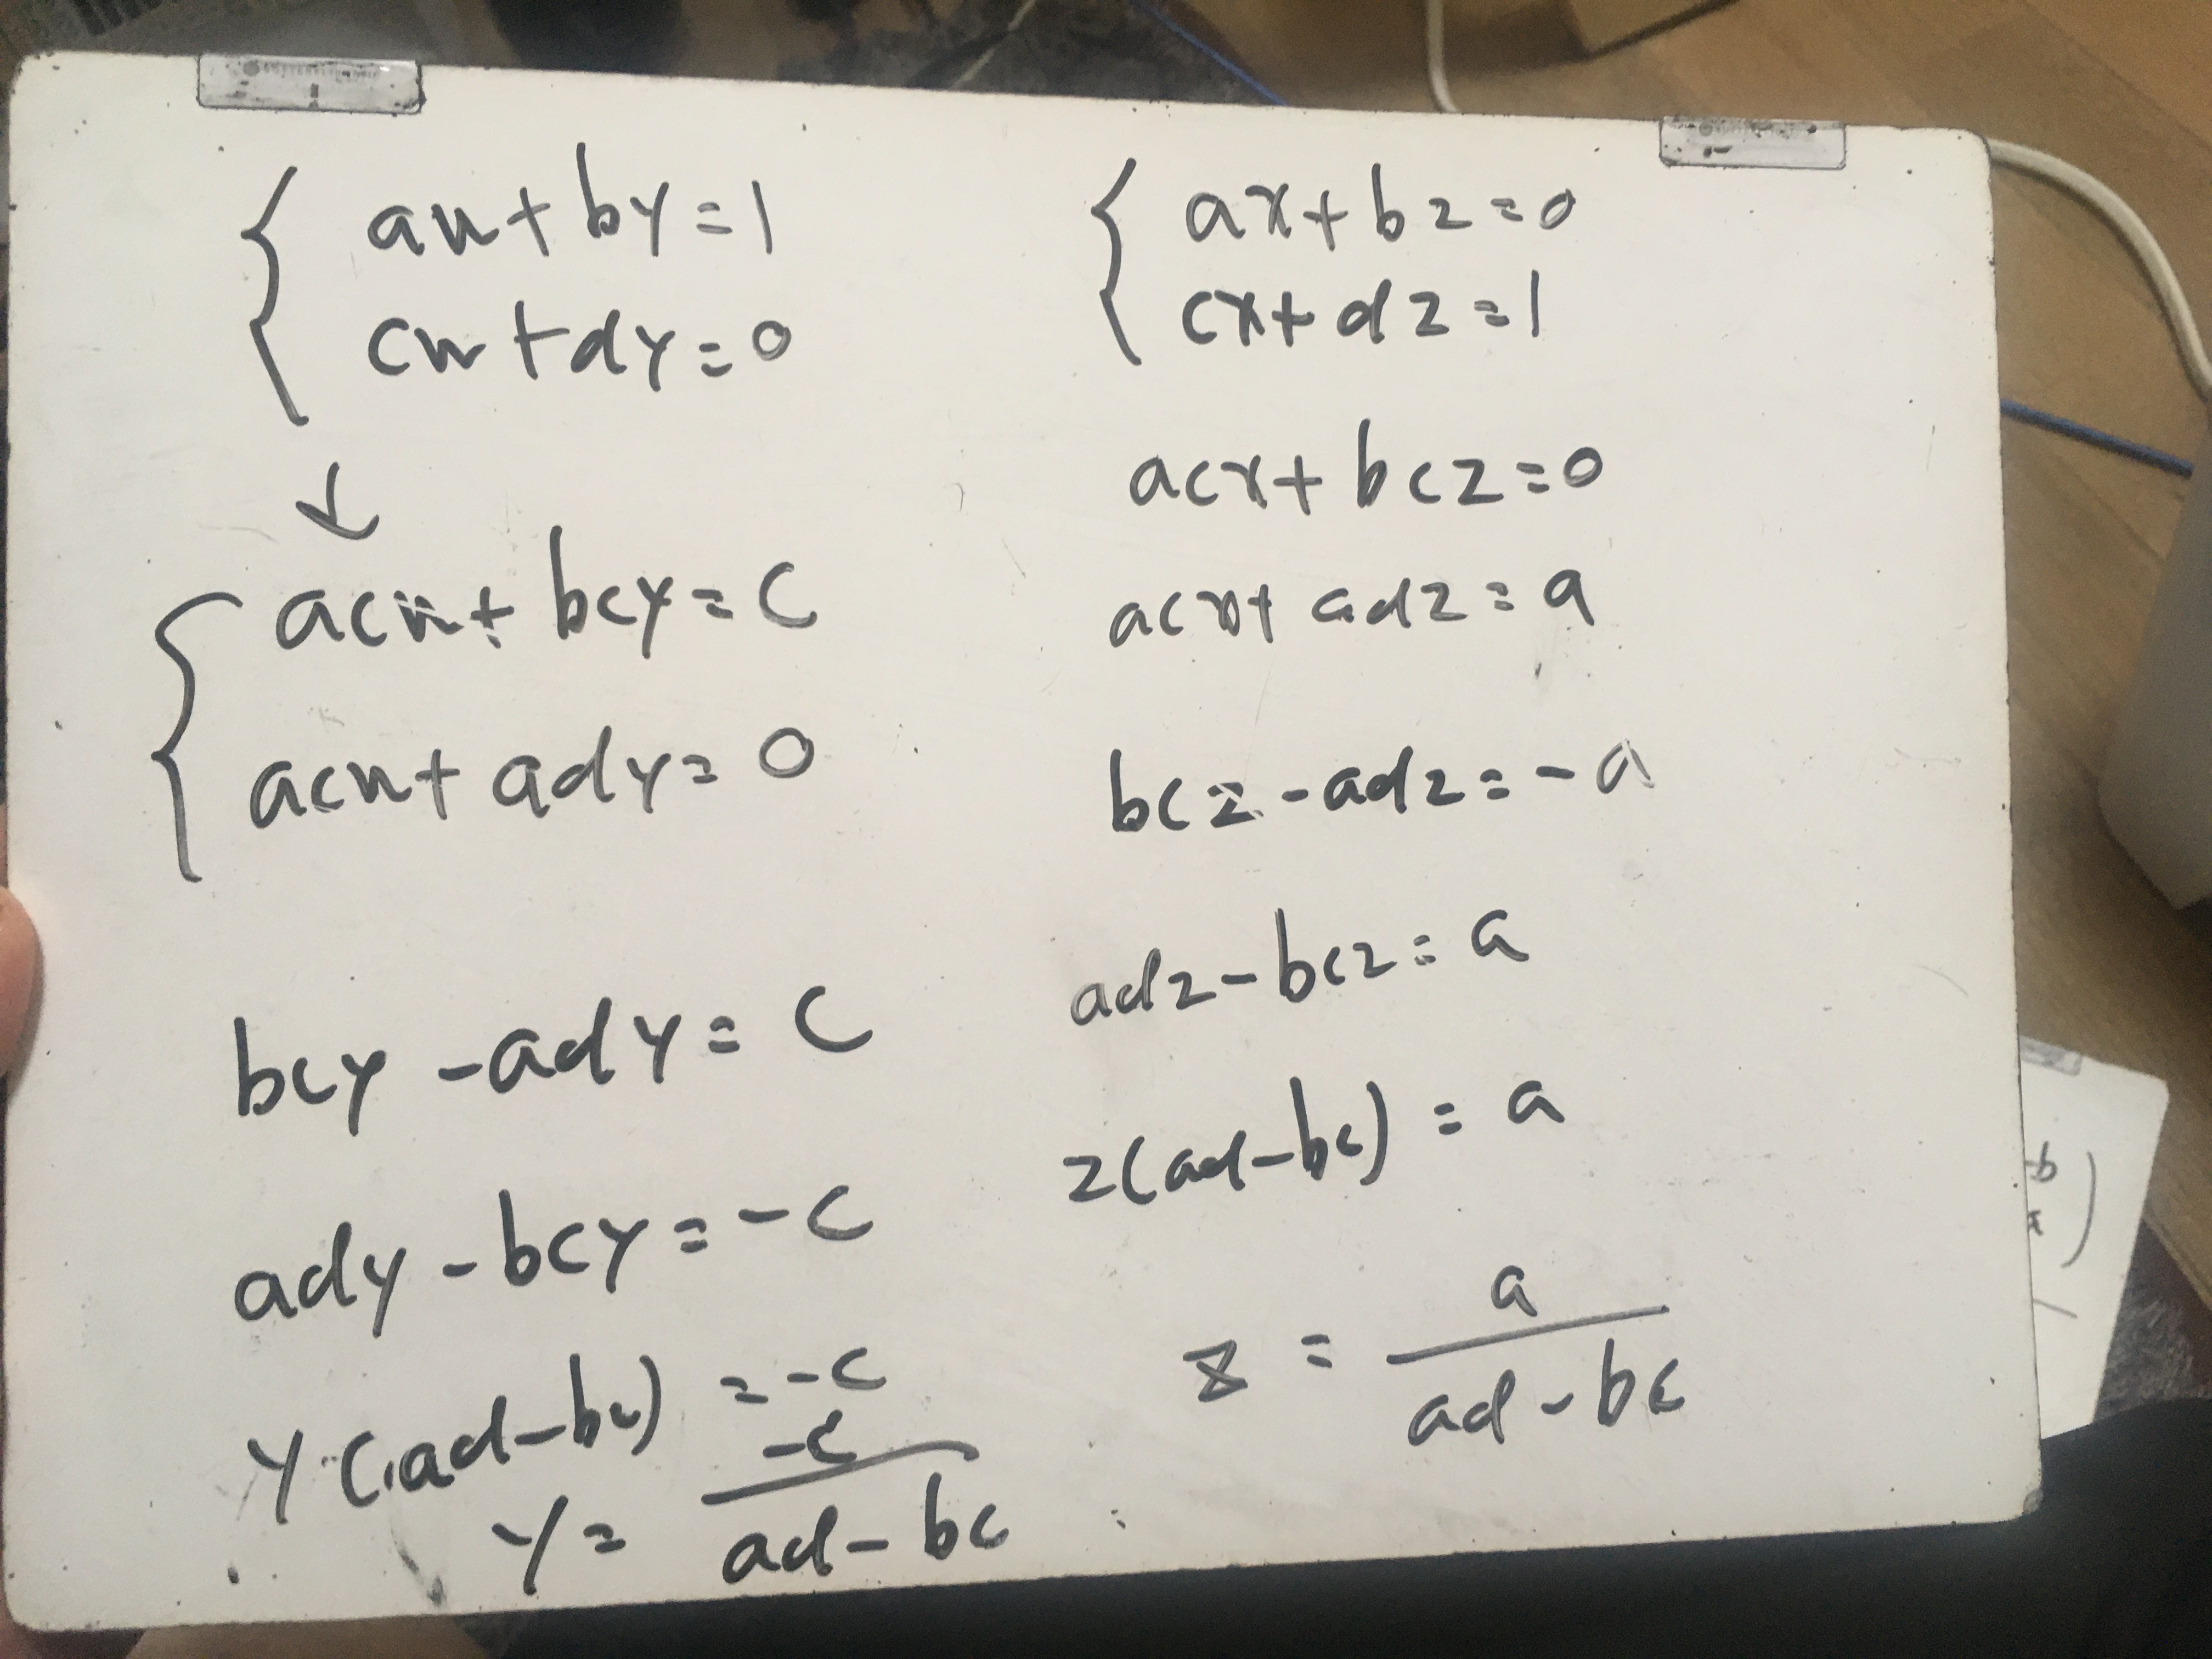 an + by = 1
cn + dy = 0
↓
acn + bcy = c
acn + ady = 0
bcy - ady = c
ady - bcy = -c
y(ad - bc) = -c
y = -c / ad - bc
ax + bz = 0
cx + dz = 1
acx + bcz = 0
acx + adz = a
bcz - adz = -a
adz - bcz = a
z(ad - bc) = a
z = a / ad - bc
-b